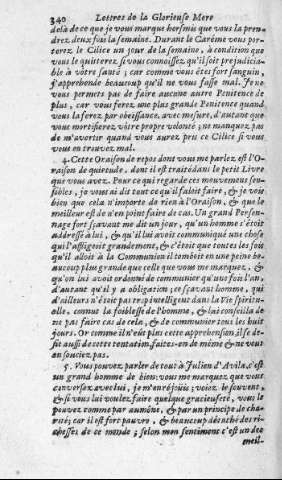 340 Lettres de la Glorieuse Mere
delà de ce que je vous marque horsmis que vous la pren-
drez deux fois la semaine. Durant le Caréme vous por-
terez le Cilice un jour de la semaine, à condition que
vous le quitterez si vous connoissez qu'il soit prejudicia-
ble à vôtre santé; car comme vous êtes fort sanguin,
j'apprehende beaucoup qu'il ne vous fasse mal. Je ne
vous permets pas de faire aucune autre Penitence de
plus, car vous ferez une plus grande Penitence quand
vous la ferez par obeïssance, avec mesure, d'autant que
vous mortifierez vôtre propre volonté; ne manquez pas
de m'avertir quand vous aurez pris ce Cilice si vous
vous en trouvez mal.
4. Cette Oraison de repos dont vous me parlez est l'O-
raison de quietude, dont il est traité dans le petit Livre
que vous avez. Pour ce qui regarde ces mouvemens sen-
sibles, je vous ai dit tout ce qu'il faloit faire, & je vois
bien que cela n'importe de rien à l'Oraison, & que le
meilleur est de n'en point faire de cas. Un grand Person-
nage fort sçavant me dit un jour, qu'un homme s'étoit
addressé à lui, & qu'il lui avoit communiqué une chose
qui l'affligeoit grandement, & c'étoit que toutes les fois
qu'il alloit à la Communion il tomboit en une peine be-
aucoup plus grande que celle que vous me marquez, &
qu'on lui avoit ordonné de communier qu'une fois l'an,
d'autant qu'il y a obligation; ce sçavant homme, qui
d'ailleurs n'étoit pas trop intelligent dans la Vie Spiritu-
elle, connut la foiblesse de l'homme, & lui conseilla de
ne pas faire cas de cela, & de communier tous les huit
jours. Or comme il n'eut plus cette apprehension, il se dé-
fit aussi de cette tentation, faites-en de même & ne vous
en souciez pas.
5. Vous pouvez parler de tout à Julien d'Avila, c'est
un grand homme de bien: vous me marquez que vous
conversez avec lui, je m'en réjoüis; voiez le souvent,
& si vous lui voulez faire quelque gracieuseté, vous le
pouvez comme par aumône, & par un principe de cha-
rité; car il est fort pauvre, & beaucoup détaché des ri-
chesses de ce monde; selon mon sentiment c'est un des
meil-